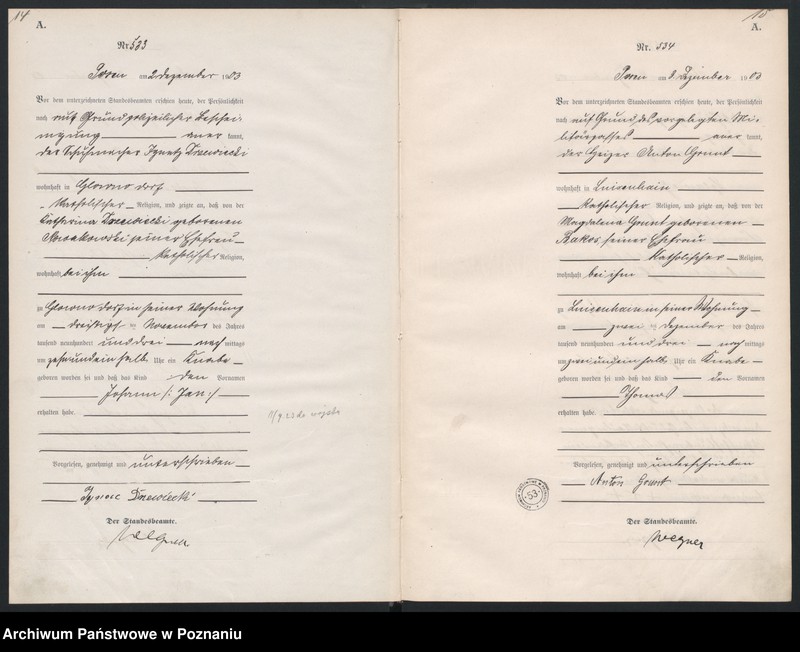 14
A.
Nr. 533
Posen am 2 Dezember 1903
Vor dem unterzeichneten Standesbeamten erschien heute, der Persönlichkeit
nach auf Grund polizeilicher Beschei-
nigung anerkannt,
der Schuhmacher Ignatz Drzewiecki
wohnhaft in Glowno dorf
Katholischer Religion, und zeigte an, daß von der
Katharina Drzewiecki geborenen
Nowakowski seiner Ehefrau
Katholischer Religion,
wohnhaft bei ihm
zu Glowno dorf in seiner Wohnung
am dreißigsten November des Jahres
tausend neunhundert und drei nachmittags
um Uhr ein Knabe
geboren worden sei und daß das Kind den Vornamen
Johann /: Jan :/
erhalten habe.
Vorgelesen, genehmigt und unterschrieben
Drzewiecki
Der Standesbeamte.
Wegner
15
A.
Nr. 534
Posen am 3 Dezember 1903
Vor dem unterzeichneten Standesbeamten erschien heute, der Persönlichkeit
nach auf Grund des vorgelegten Mi-
litärpasses anerkannt,
der Heizer Anton Grunt
wohnhaft in Luisenhain
Katholischer Religion, und zeigte an, daß von der
Magdalena Grunt geborenen
Rakos, seiner Ehefrau
Katholischer Religion,
wohnhaft bei ihm
zu Luisenhain in seiner Wohnung
am zwei ten Dezember des Jahres
tausend neunhundert und drei nachmittags
um Uhr ein Knabe
geboren worden sei und daß das Kind den Vornamen
Thomas
erhalten habe.
Vorgelesen, genehmigt und unterschrieben
Anton Grunt
53
Der Standesbeamte.
Wegner
Archiwum Państwowe w Poznaniu